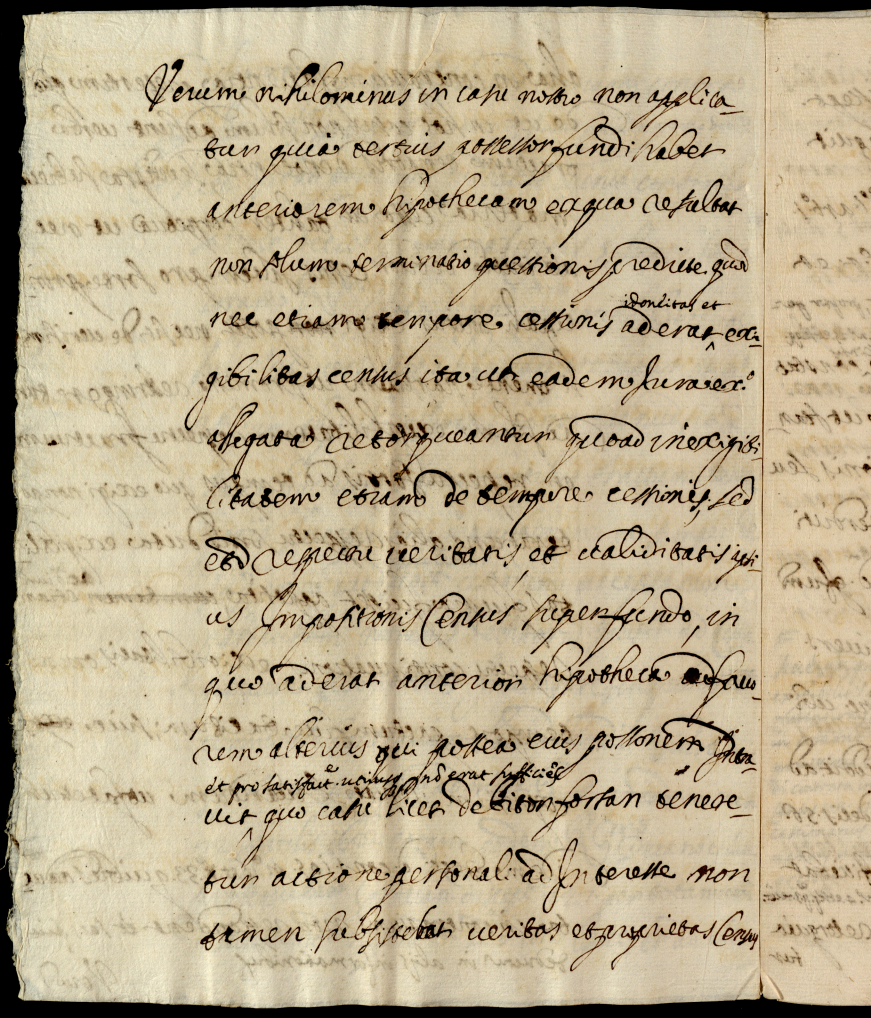 Verum nihilominus in casu nostro non applica-
tur quia tertius possessor fundi habet
anteriorem hipothecam ex qua resultat
non solum terminatio questionis predicte quod
idoneitas et
nec etiam tempore cessionis aderat exi-
gibilitas census ita ut eadem Jura ex.º
allegata retorqueantur quoad inexigibi-
litatem etiam de tempore cessionis, sed
et respectu veritatis, et validitatis ipsi-
us Impositionis Census super fundo, in
quo aderat anterior hipotheca ad favo-
rem alterius qui postea eius possionem Intra-
et pro satisfact.e utriusq. nõ erat sufficiẽs
vit quo casu licet debitor forsan tenere-
tur actione personali ad Interesse non
tamen subsistebat veritas et proprietas Census